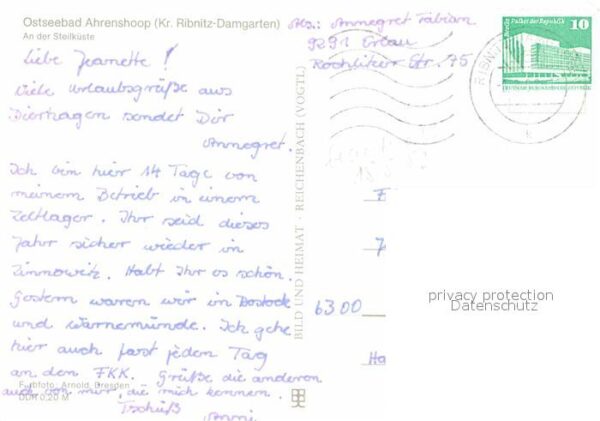 Ostseebad Ahrenshoop (Kr. Ribnitz-Damgarten)
An der Steilküste
Liebe Jeanette!
Viele Urlaubsgrüße aus
Dierhagen sendet Dir
Annegret.
Ich bin hier 14 Tage von
meinem Betrieb in einem
Zeltlager. Ihr seid dieses
Jahr sicher wieder in
Zinnowitz. Habt Ihr es schön.
Gestern waren wir in Rostock
und Warnemünde. Ich gehe
hier auch fast jeden Tag
an den FKK. Grüße die anderen
auch von mir, die mich kennen.
Tschüß
Anni
Farbfoto: Arnold, Dresden
DDR 0,20 M
BILD UND HEIMAT · REICHENBACH (VOGTL)
Abs.: Annegret Fabian
9291 Erlau
Rochlitzer Str. 75
Palast der Republik
Berlin
10
DEUTSCHE DEMOKRATISCHE REPUBLIK
RIBNIT
6300
Ha
privacy protection
Datenschutz